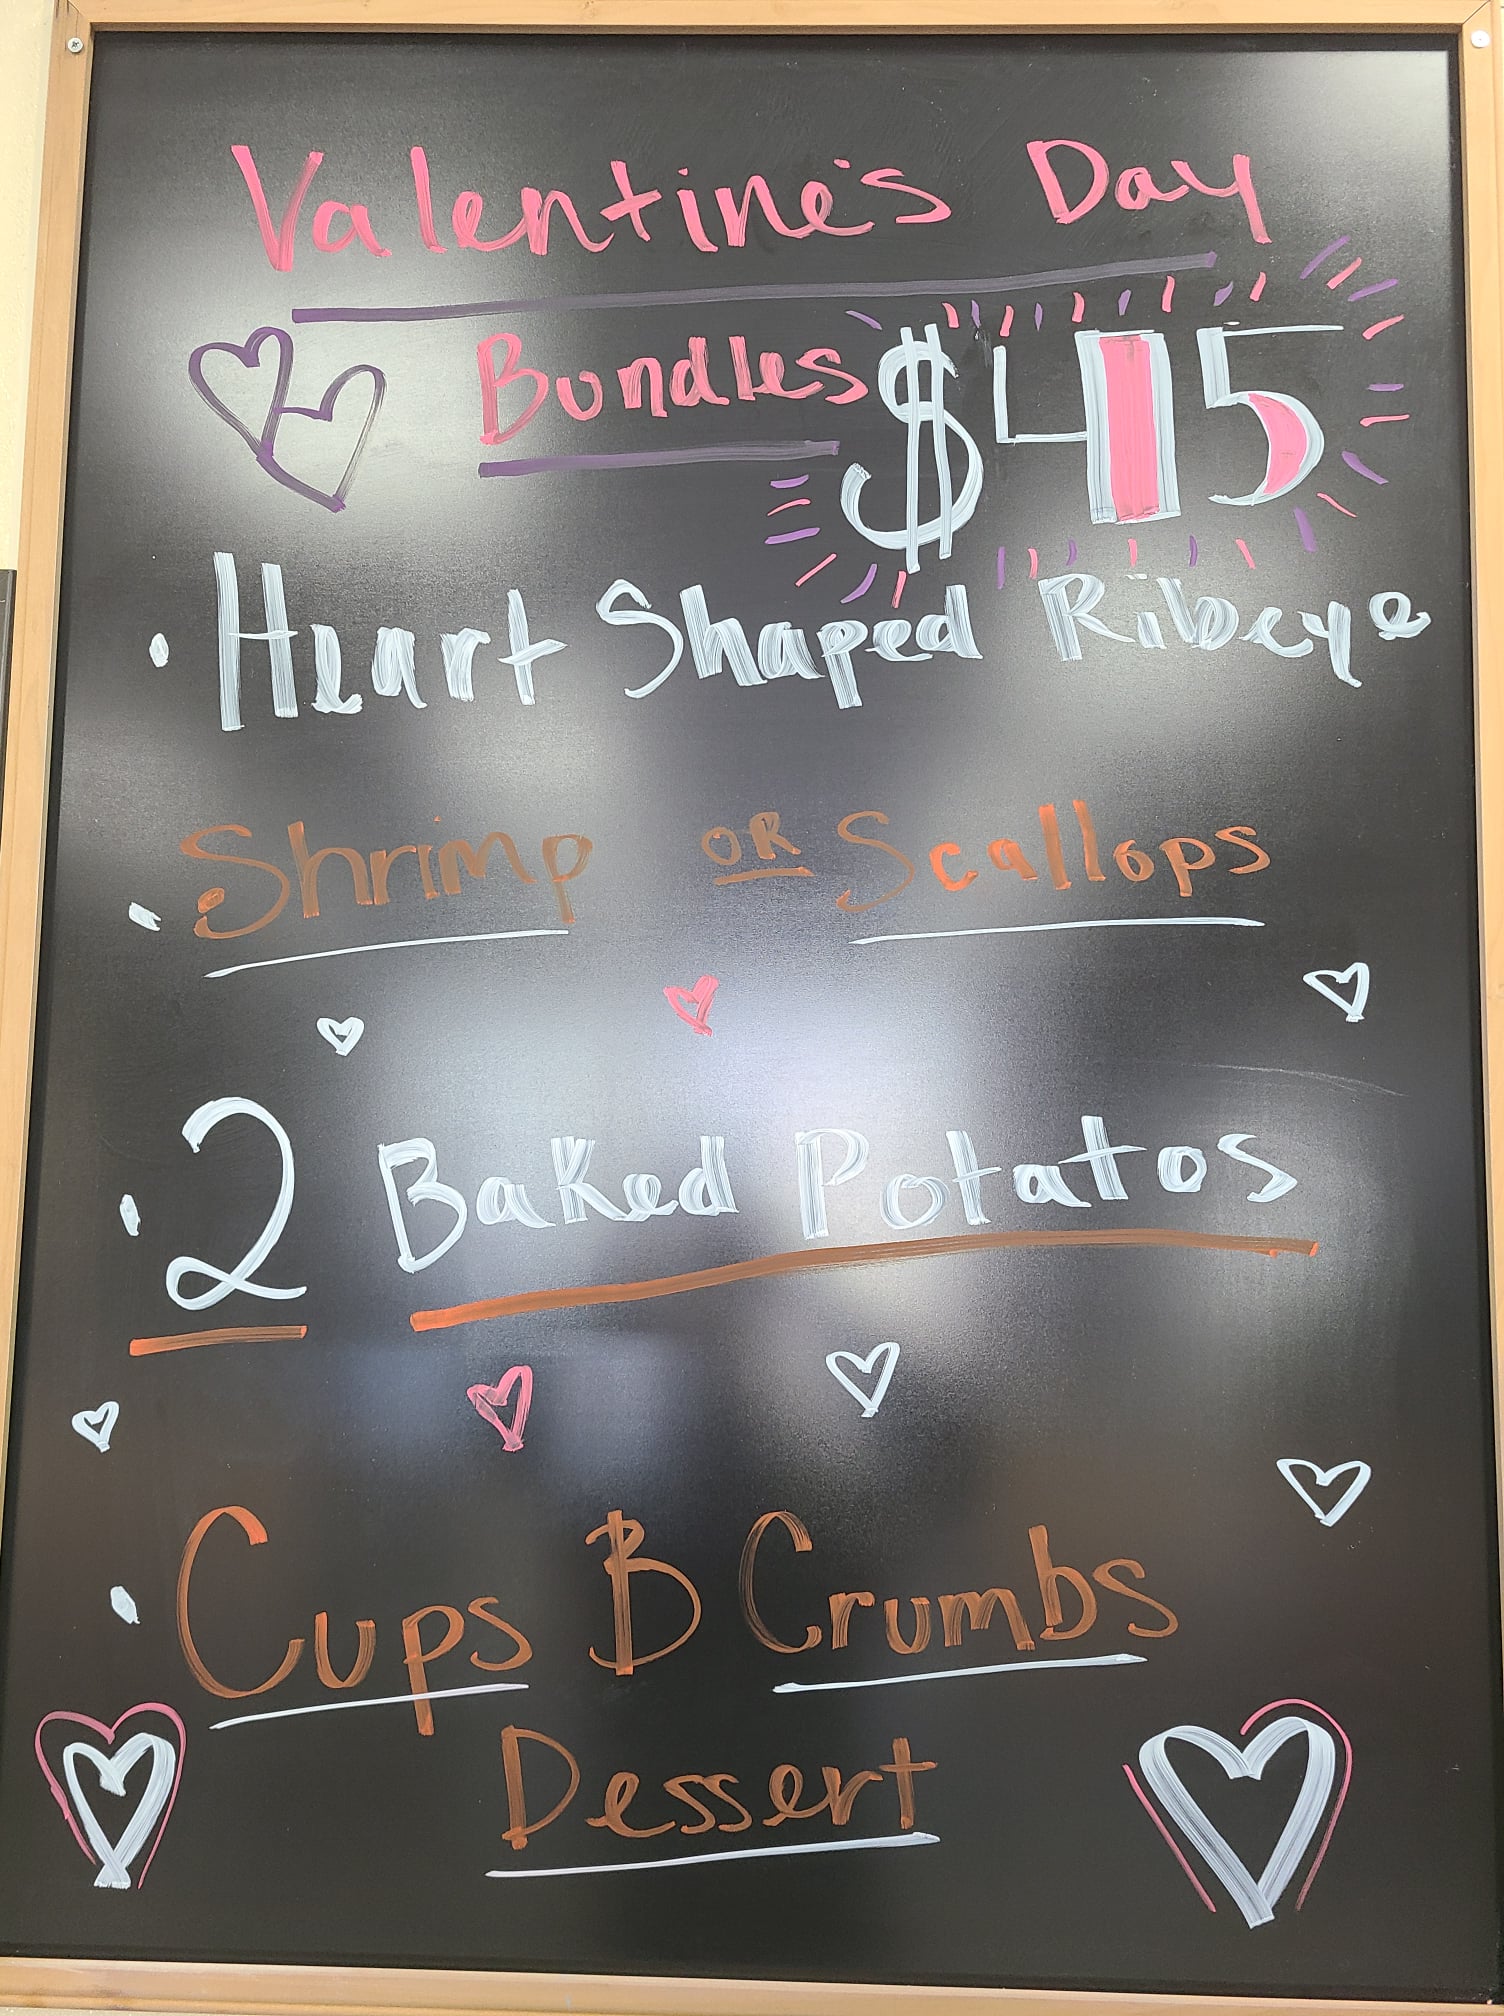 Valentine's Day
Bundles $45
• Heart Shaped Ribeye
• Shrimp OR Scallops
• 2 Baked Potatos
• Cups B Crumbs
Dessert